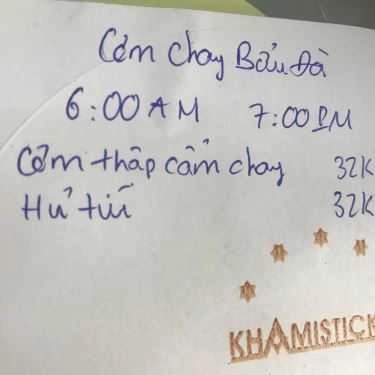 Cơm chay Bửu Đà
6:00 AM 7:00 PM
Cơm thập cẩm chay 32K
Hủ tiếu 32K
KHAMISTICK